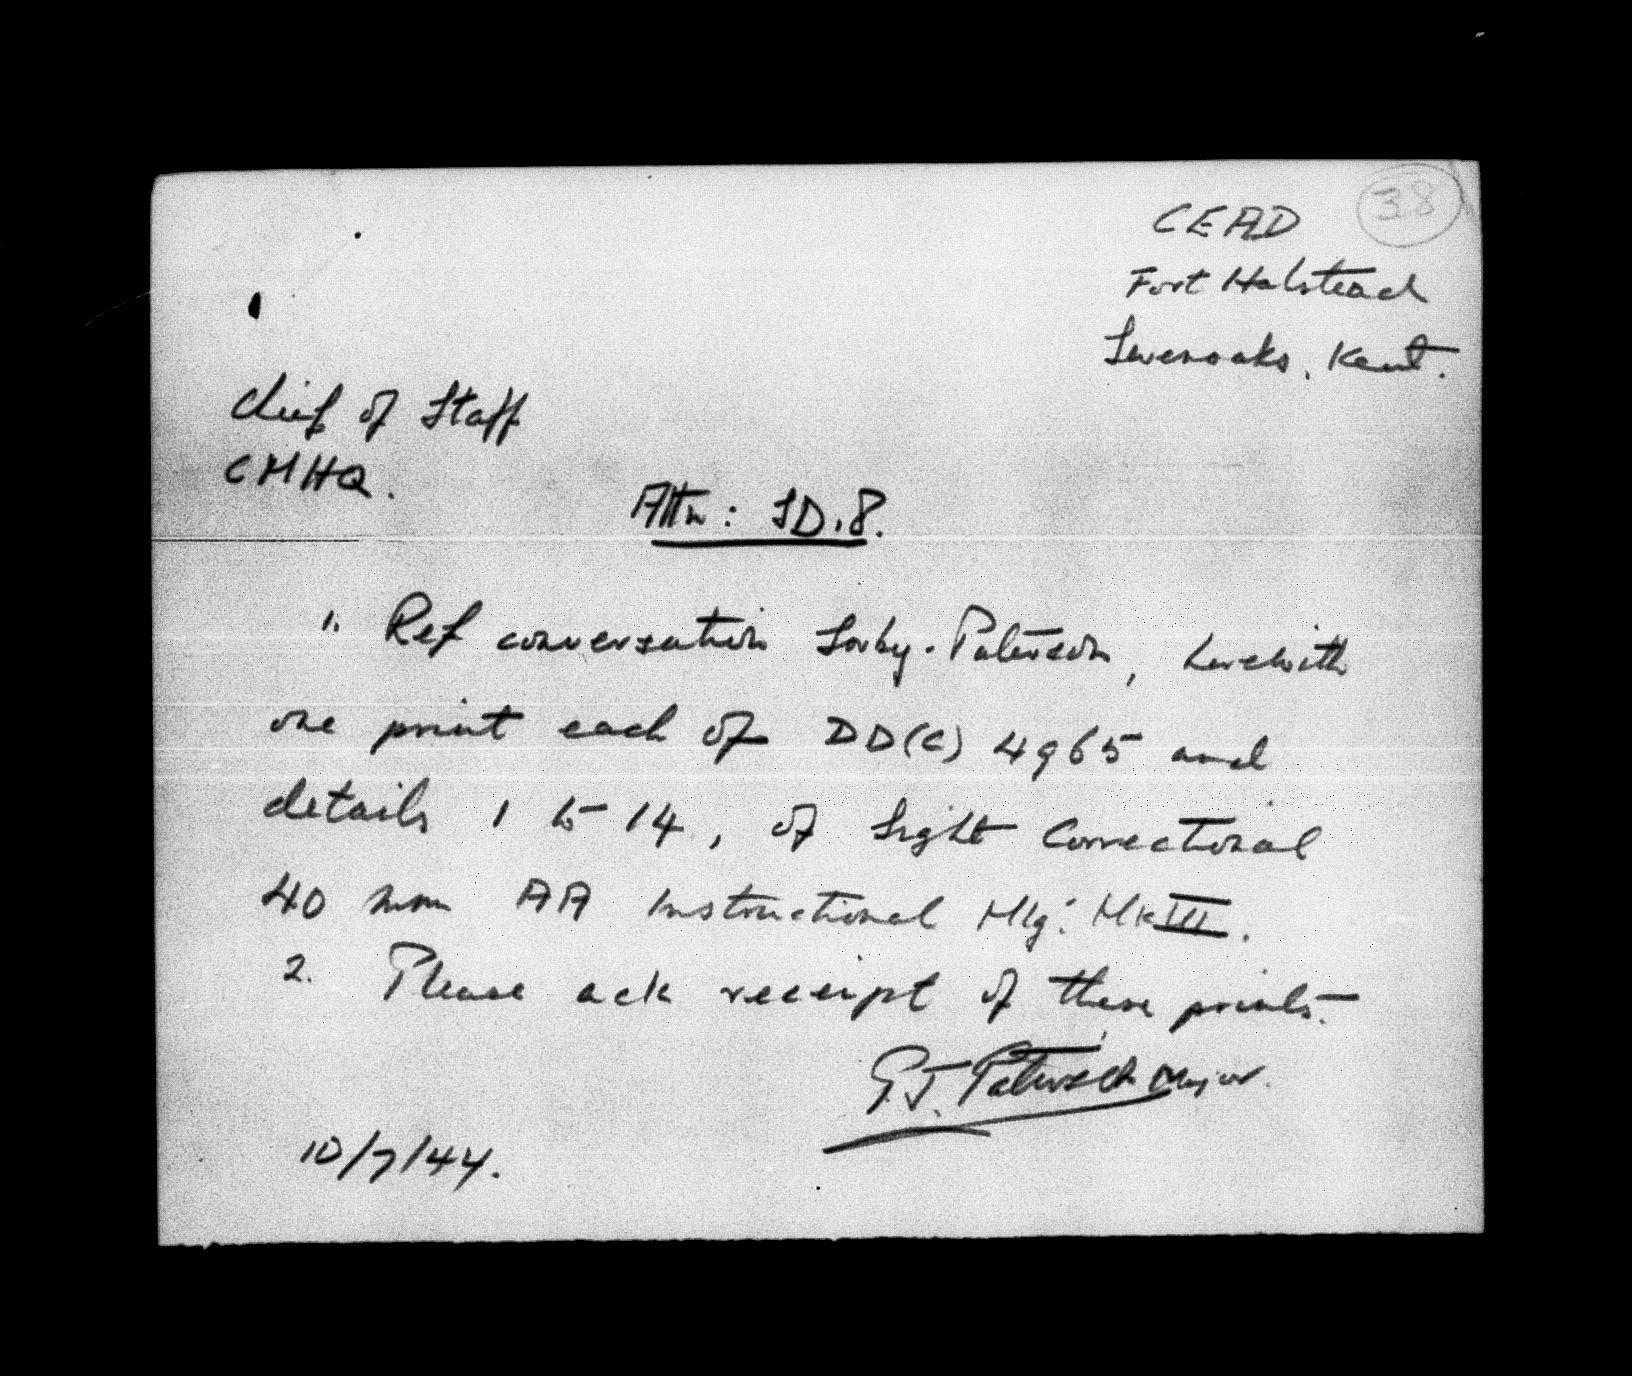 38
CEAD
Fort Halstead
Sevenoaks, Kent.
Chief of Staff
CMHQ.
Attn: SD.8.
1. Ref conversation Sorby-Paterson, herewith
one print each of DD(C) 4965 and
details 1 to 14, of Sight Correctional
40 mm AA Instructional Mtg: Mk III.
2. Please ack receipt of these prints.
G.J. Paterson Major.
10/7/44.